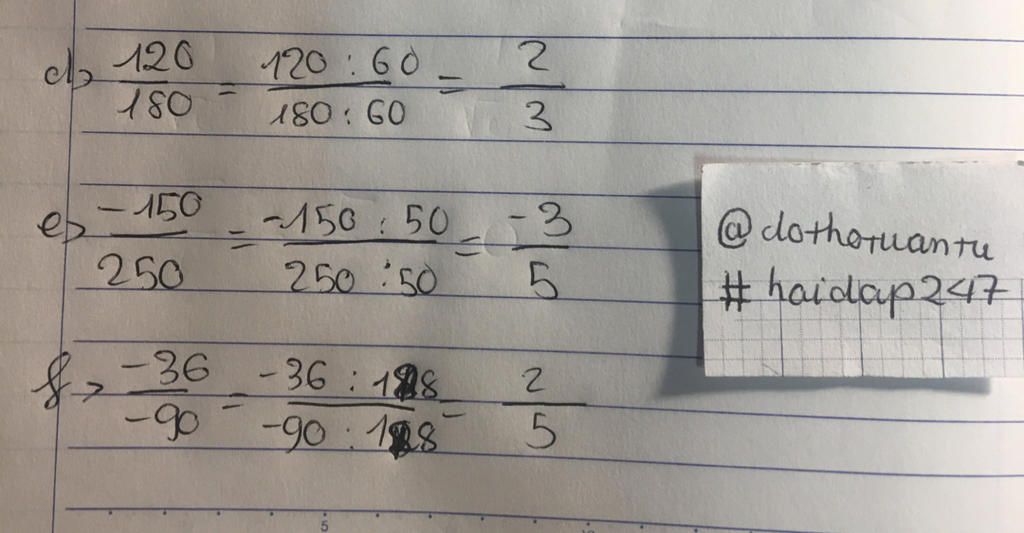 d> 120/180 = 120 : 60/180 : 60 = 2/3
e> -150/250 = -150 : 50/250 : 50 = -3/5
f> -36/-90 = -36 : 18/-90 : 18 = 2/5
@dothotuantu
#haidap247
5